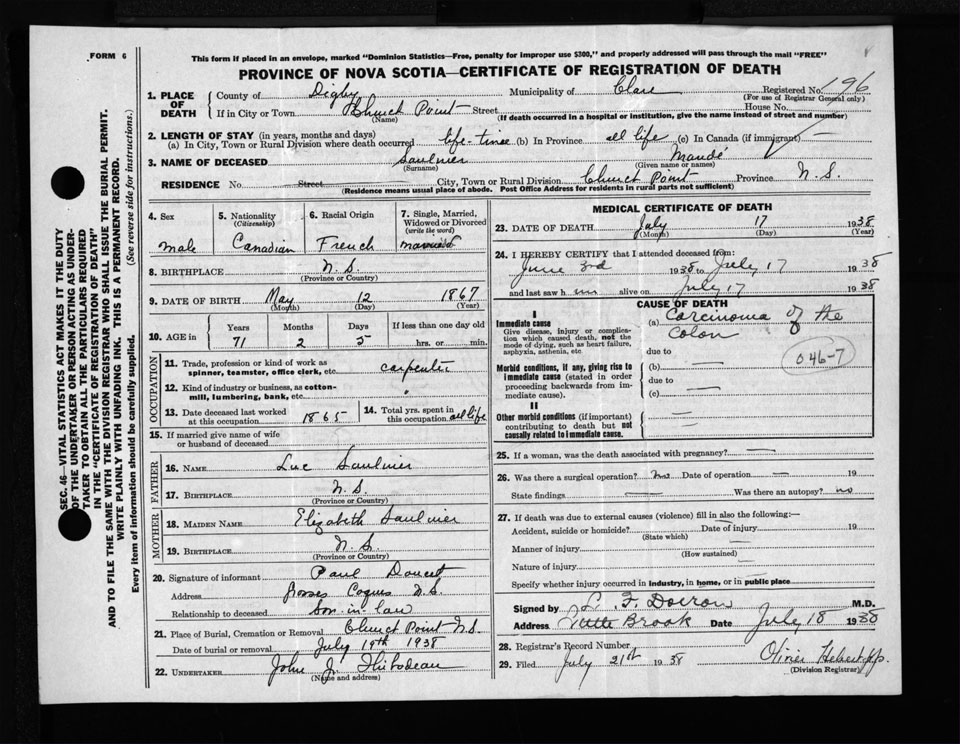 FORM 6
This form if placed in an envelope, marked "Dominion Statistics—Free, penalty for improper use $300," and properly addressed will pass through the mail "FREE"
PROVINCE OF NOVA SCOTIA—CERTIFICATE OF REGISTRATION OF DEATH
1. PLACE OF DEATH
County of Digby Municipality of Clare Registered No. 196
(For use of Registrar General only)
If in City or Town Church Point Street House No.
(Name) (If death occurred in a hospital or institution, give the name instead of street and number)
2. LENGTH OF STAY (in years, months and days)
(a) In City, Town or Rural Division where death occurred life-time (b) In Province all life (c) In Canada (if immigrant)
3. NAME OF DECEASED Saulnier Mandé
(Surname) (Given name or names)
RESIDENCE No. Street City, Town or Rural Division Church Point Province N.S.
(Residence means usual place of abode. Post Office Address for residents in rural parts not sufficient)
4. Sex male
5. Nationality (Citizenship) Canadian
6. Racial Origin French
7. Single, Married, Widowed or Divorced (write the word) married
8. BIRTHPLACE N.S.
(Province or Country)
9. DATE OF BIRTH May 12 1867
(Month) (Day) (Year)
10. AGE in Years Months Days If less than one day old
71 2 5 hrs. or min.
OCCUPATION
11. Trade, profession or kind of work as spinner, teamster, office clerk, etc. carpenter
12. Kind of industry or business, as cotton-mill, lumbering, bank, etc.
13. Date deceased last worked at this occupation 1865
14. Total yrs. spent in this occupation all life
15. If married give name of wife or husband of deceased
FATHER
16. NAME Luc Saulnier
17. BIRTHPLACE N.S.
(Province or Country)
MOTHER
18. MAIDEN NAME Elizabeth Saulnier
19. BIRTHPLACE N.S.
(Province or Country)
20. Signature of informant Paul Doucet
Address Grosses Coques N.S.
Relationship to deceased Son-in-law
21. Place of Burial, Cremation or Removal Church Point N.S.
Date of burial or removal July 19th 1938
22. UNDERTAKER John J. Thibodeau
(Name and address)
MEDICAL CERTIFICATE OF DEATH
23. DATE OF DEATH July 17 1938
(Month) (Day) (Year)
24. I HEREBY CERTIFY that I attended deceased from:
June 3rd 1938 to July 17 1938
and last saw him alive on July 17 1938
CAUSE OF DEATH
I
Immediate cause
Give disease, injury or complication which caused death, not the mode of dying, such as heart failure, asphyxia, asthenia, etc
(a) Carcinoma of the Colon
046-7
due to
Morbid conditions, if any, giving rise to immediate cause (stated in order proceeding backwards from immediate cause).
(b)
due to
(c)
II
Other morbid conditions (if important) contributing to death but not causally related to immediate cause.
25. If a woman, was the death associated with pregnancy?
26. Was there a surgical operation? no Date of operation 19
State findings Was there an autopsy? no
27. If death was due to external causes (violence) fill in also the following:—
Accident, suicide or homicide? Date of injury 19
(State which)
Manner of injury
(How sustained)
Nature of injury
Specify whether injury occurred in industry, in home, or in public place
Signed by L. F. Doiron M.D.
Address Little Brook Date July 18 1938
28. Registrar's Record Number
29. Filed July 21st 1938
(Division Registrar)
SEC. 46—VITAL STATISTICS ACT MAKES IT THE DUTY
OF THE UNDERTAKER OR PERSON ACTING AS UNDER-
TAKER TO OBTAIN ALL THE PARTICULARS REQUIRED
IN THE "CERTIFICATE OF REGISTRATION OF DEATH"
AND TO FILE THE SAME WITH THE DIVISION REGISTRAR WHO SHALL ISSUE THE BURIAL PERMIT.
WRITE PLAINLY WITH UNFADING INK. THIS IS A PERMANENT RECORD.
Every item of information should be carefully supplied. (See reverse side for instructions.)